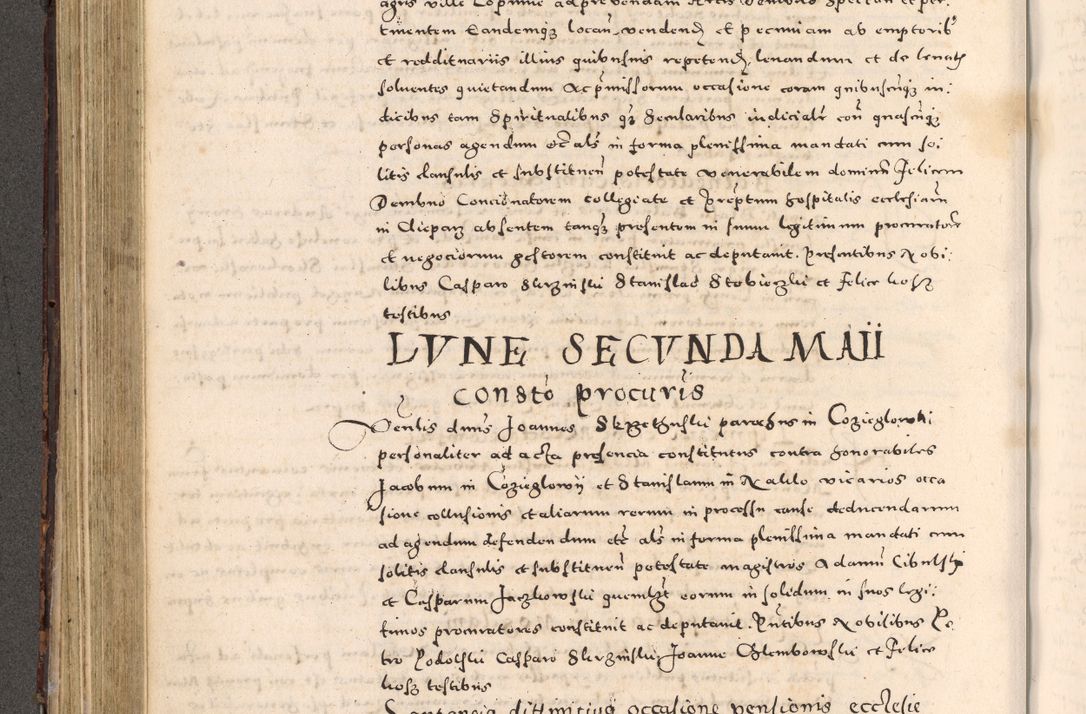 tinentem tandemqz locan vendend et pecuniam ab emptorib9
et reddituariis illius quibusuis repetend, leuandum et de leuatis
soluentes quietandum Ac pmissorum occasione coram quibuscuqz in:
dicibus tam Spiritualibus qz Secularibus iudicialr con quascuqz
personas agendum etc als in forma plenissima mandati cum so:
litis clausulis et substituen potestate venerabilem dominu Felicem
Dembno Concionatorem collegiate et Preptum hospitalis ecclesiarum
in absentem tanqz presentem in suum legitimum procuratore
et negociorum gestorem constituit ac deputauit. Presentibus Nobi:
libus Casparo Skrzinski Stanislao et Felice kosz
testibus
LVNE SECVNDA MAII
Consto procuris
Venlis dnus Joannes parochus in Cozieglowki
personaliter ad acta presencia constitutus contra honorabiles
Jacobum in Cozieglowy et Stanislaum in vicarios occa
sione collusionis et aliarum rerum in processu cause deducendarum
ad agendum defendendum etc als in forma plenissima mandati cum
solitis clausulis et substituen potestate magistros Adamu
et Casparum Jaczkowski quemlzt eorum in solidum in suos legi:
timos procuratores constituit ac deputauit. Pntibus Nobilibus Pe:
tro Podolski Casparo Skrzinski Joanne Glembowski et Felice
kosz testibus
Sentencia diffinitiua occasione pensionis ecclesie